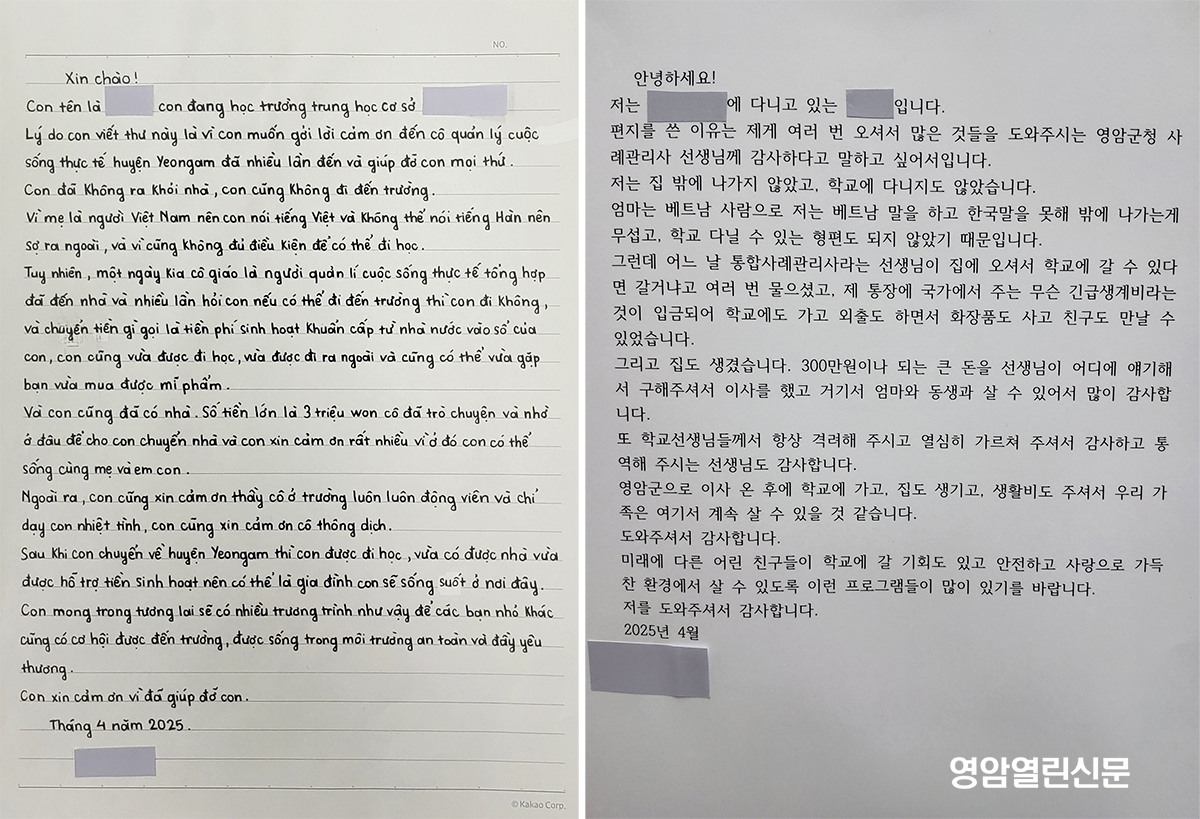 NO.
Xin chào!
Con tên là con đang học trường trung học cơ sở
Lý do con viết thư này là vì con muốn gởi lời cảm ơn đến cô quản lý cuộc
sống thực tế huyện Yeongam đã nhiều lần đến và giúp đỡ con mọi thứ.
Con đã không ra khỏi nhà, con cũng không đi đến trường.
Vì mẹ là người Việt Nam nên con nói tiếng Việt và không thể nói tiếng Hàn nên
sợ ra ngoài, và vì cũng không đủ điều kiện để có thể đi học.
Tuy nhiên, một ngày kia cô giáo là người quản lí cuộc sống thực tế tổng hợp
đã đến nhà và nhiều lần hỏi con nếu có thể đi đến trường thì con đi không,
và chuyển tiền gì gọi là tiền phí sinh hoạt khuẩn cấp từ nhà nước vào sổ của
con, con cũng vừa được đi học, vừa được đi ra ngoài và cũng có thể vừa gặp
bạn vừa mua được mĩ phẩm.
Và con cũng đã có nhà. Số tiền lớn là 3 triệu won cô đã trò chuyện và nhờ
ở đâu để cho con chuyển nhà và con xin cảm ơn rất nhiều vì ở đó con có thể
sống cùng mẹ và em con.
Ngoài ra, con cũng xin cảm ơn thầy cô ở trường luôn luôn động viên và chỉ
dạy con nhiệt tình, con cũng xin cảm ơn cô thông dịch.
Sau khi con chuyển về huyện Yeongam thì con được đi học, vừa có được nhà vừa
được hỗ trợ tiền sinh hoạt nên có thể là gia đình con sẽ sống suốt ở nơi đây.
Con mong trong tương lai sẽ có nhiều trương trình như vậy để các bạn nhỏ khác
cũng có cơ hội được đến trường, được sống trong môi trường an toàn và đầy yêu
thương.
Con xin cảm ơn vì đã giúp đỡ con.
Tháng 4 năm 2025.
© Kakao Corp.
안녕하세요!
저는 에 다니고 있는 입니다.
편지를 쓴 이유는 제게 여러 번 오셔서 많은 것들을 도와주시는 영암군청 사
례관리사 선생님께 감사하다고 말하고 싶어서입니다.
저는 집 밖에 나가지 않았고, 학교에 다니지도 않았습니다.
엄마는 베트남 사람으로 저는 베트남 말을 하고 한국말을 못해 밖에 나가는게
무섭고, 학교 다닐 수 있는 형편도 되지 않았기 때문입니다.
그런데 어느 날 통합사례관리사라는 선생님이 집에 오셔서 학교에 갈 수 있다
면 갈거냐고 여러 번 물으셨고, 제 통장에 국가에서 주는 무슨 긴급생계비라는
것이 입금되어 학교에도 가고 외출도 하면서 화장품도 사고 친구도 만날 수
있었습니다.
그리고 집도 생겼습니다. 300만원이나 되는 큰 돈을 선생님이 어디에 얘기해
서 구해주셔서 이사를 했고 거기서 엄마와 동생과 살 수 있어서 많이 감사합
니다.
또 학교선생님들께서 항상 격려해 주시고 열심히 가르쳐 주셔서 감사하고 통
역해 주시는 선생님도 감사합니다.
영암군으로 이사 온 후에 학교에 가고, 집도 생기고, 생활비도 주셔서 우리 가
족은 여기서 계속 살 수 있을 것 같습니다.
도와주셔서 감사합니다.
미래에 다른 어린 친구들이 학교에 갈 기회도 있고 안전하고 사랑으로 가득
찬 환경에서 살 수 있도록 이런 프로그램들이 많이 있기를 바랍니다.
저를 도와주셔서 감사합니다.
2025년 4월
영암열린신문